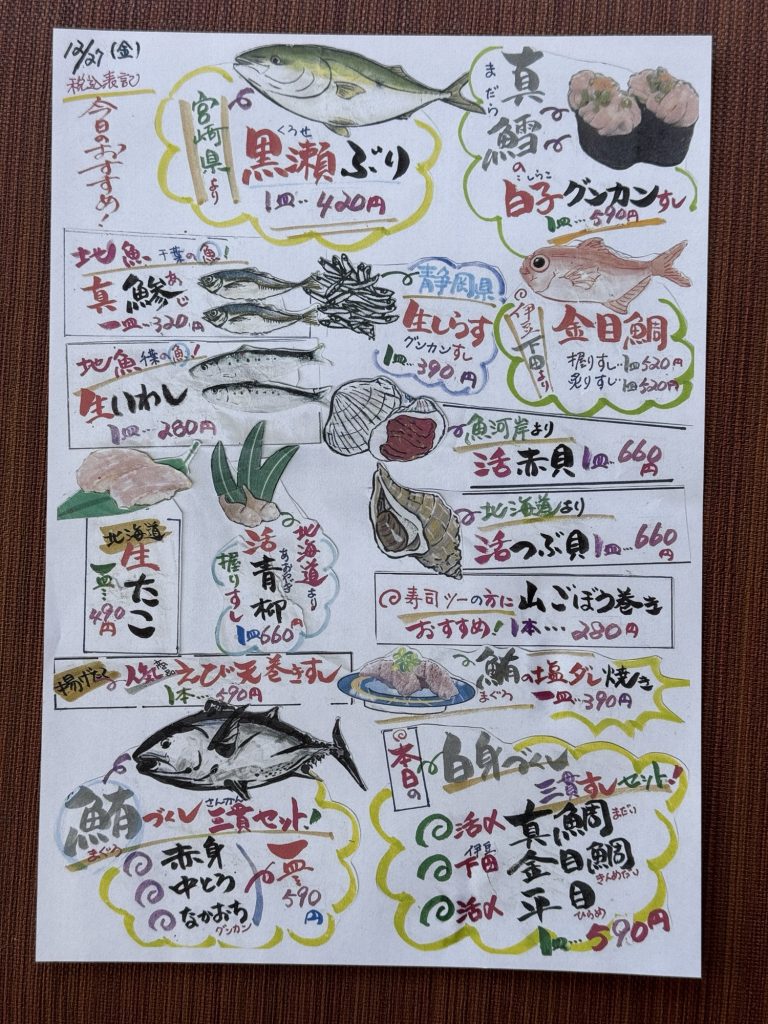 12/27(金)
税込表記
今日のおすすめ!
宮崎県より
くろせ
黒瀬ぶり
1皿…420円
まだら
真鱈の
しらこ
白子グンカンすし
1皿…590円
地魚 千葉の魚!
真鯵
あじ
一皿…320円
静岡県
生しらす
グンカンすし
1皿…390円
伊豆下田より
金目鯛
握りすし…1皿520円
炙りすし…1皿520円
地魚 千葉の魚!
生いわし
1皿…280円
魚河岸より
活赤貝 1皿…660円
北海道より
活つぶ貝 1皿…660円
北海道
生たこ
一皿…490円
北海道より
活青柳
あおやぎ
握りすし
1皿660円
寿司ツーの方に 山ごぼう巻き
おすすめ! 1本…280円
揚げたて 人気商品 えび天巻きすし
1本…590円
鮪の塩ダレ焼き
まぐろ
一皿…390円
鮪づくし 三貫セット!
まぐろ
さんかん
赤身
中とろ
なかおち
グンカン
一皿…590円
本日の
白身づくし
三貫すしセット!!
活〆 真鯛 まだい
伊豆
下田 金目鯛 きんめだい
活〆 平目 ひらめ
1皿…590円